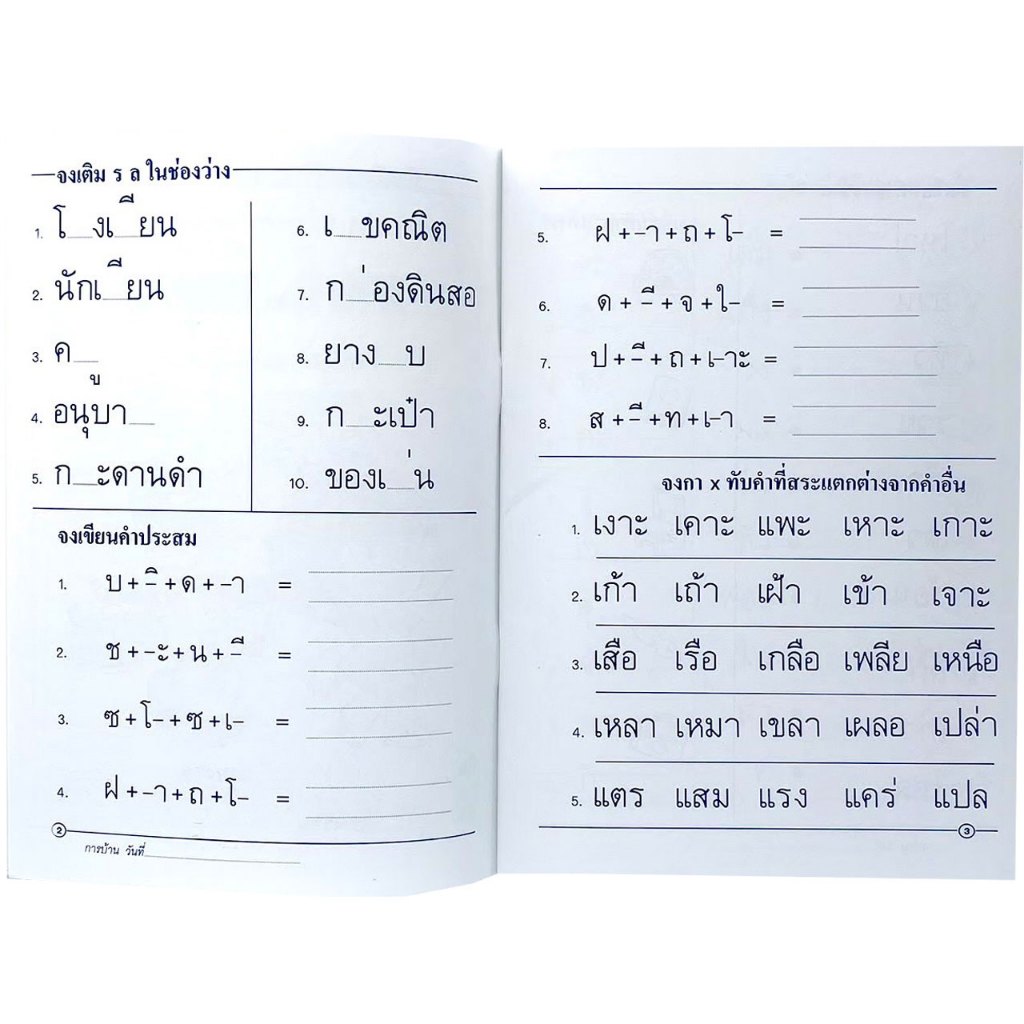 จงเติม ร ล ในช่องว่าง
1. โ__งเ__ียน
2. นักเ__ียน
3. ค__ู
4. อนุบา__
5. ก__ะดานดำ
6. เ__ขคณิต
7. ก__่องดินสอ
8. ยาง__บ
9. ก__ะเป๋า
10. ของเ__่น
จงเขียนคำประสม
1. บ + -ิ + ด + -า =
2. ช + -ะ + น + -ี =
3. ซ + โ- + ซ + เ- =
4. ฝ + -า + ถ + โ- =
2
การบ้าน วันที่
5. ฝ + -า + ถ + โ- =
6. ด + -ี + จ + ใ- =
7. ป + -ี + ถ + เ-าะ =
8. ส + -ี + ท + เ-า =
จงกา x ทับคำที่สระแตกต่างจากคำอื่น
1. เงาะ เคาะ แพะ เหาะ เกาะ
2. เก้า เถ้า เฝ้า เข้า เจาะ
3. เสือ เรือ เกลือ เพลีย เหนือ
4. เหลา เหมา เขลา เผลอ เปล่า
5. แตร แสม แรง แคร่ แปล
3